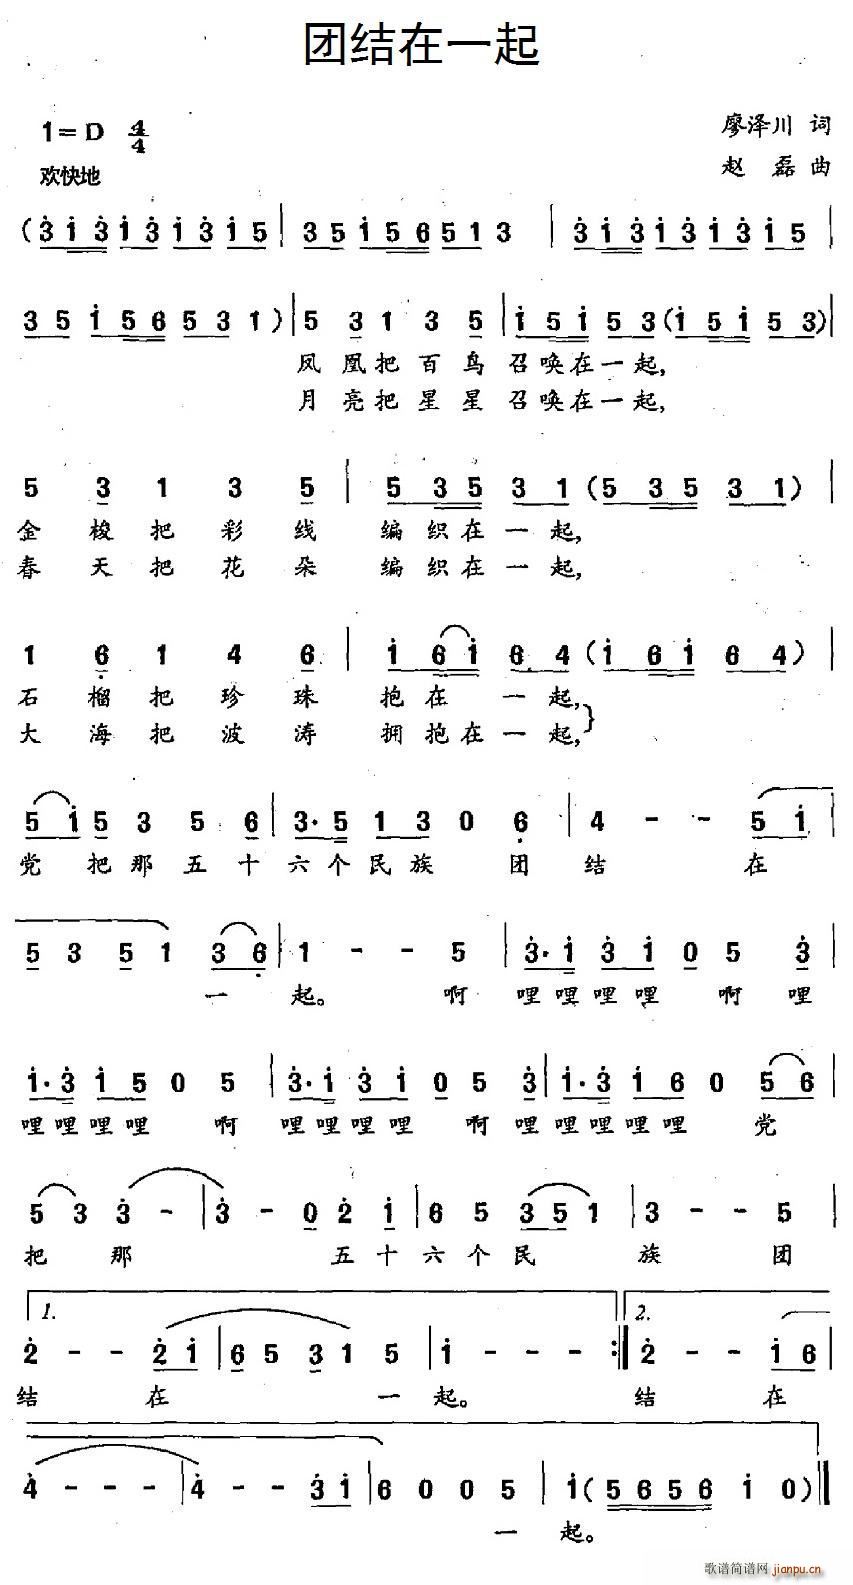 团结在一起
1=D 4/4
廖泽川 词
欢快地
赵 磊 曲
(3̇ 1̇ 3̇ 1̇ 3̇ 1̇ 3̇ 1̇ 5 | 3 5 1̇ 5 6 5 1 3 | 3̇ 1̇ 3̇ 1̇ 3̇ 1̇ 3̇ 1̇ 5 |
3 5 1̇ 5 6 5 3 1 ) | 5 3 1 3 5 | 1̇ 5 1̇ 5 3 (1̇ 5 1̇ 5 3) |
凤凰把百鸟召唤在一起,
月亮把星星召唤在一起,
5 3 1 3 5 | 5 3 5 3 1 (5 3 5 3 1) |
金梭把彩线编织在一起,
春天把花朵编织在一起,
1 6̣ 1 4 6 | 1̇ 6 1̇ 6 4 (1̇ 6 1̇ 6 4) |
石榴把珍珠抱在一起,
大海把波涛拥抱在一起,}
5 1̇ 5 3 5 6 | 3· 5 1 3 0 6̣ | 4 - - 5 1̇ |
党把那五十六个民族团结在
5 3 5 1 3 6̣ | 1 - - 5 | 3̇· 1̇ 3̇ 1̇ 0 5 3̇ |
一起。啊哩哩哩哩啊哩
1̇· 3̇ 1̇ 5 0 5 | 3̇· 1̇ 3̇ 1̇ 0 5 3̇ | 1̇· 3̇ 1̇ 6 0 5 6 |
哩哩哩哩啊哩哩哩哩啊哩哩哩哩哩党
5 3 3̇ - | 3̇ - 0 2̇ 1̇ | 6 5 3 5 1 | 3 - - 5 |
把那五十六个民族团
1. 2.
2̇ - - 2̇ 1̇ | 6 5 3 1 5 | 1̇ - - - :| 2̇ - - 1̇ 6 |
结在一起。结在
4̇ - - - | 4̇ - - 3̇ 1̇ | 6 0 0 5 | 1̇ ( 5 6 5 6 1̇ 0 ) ‖
一起。
歌谱简谱网 jianpu.cn